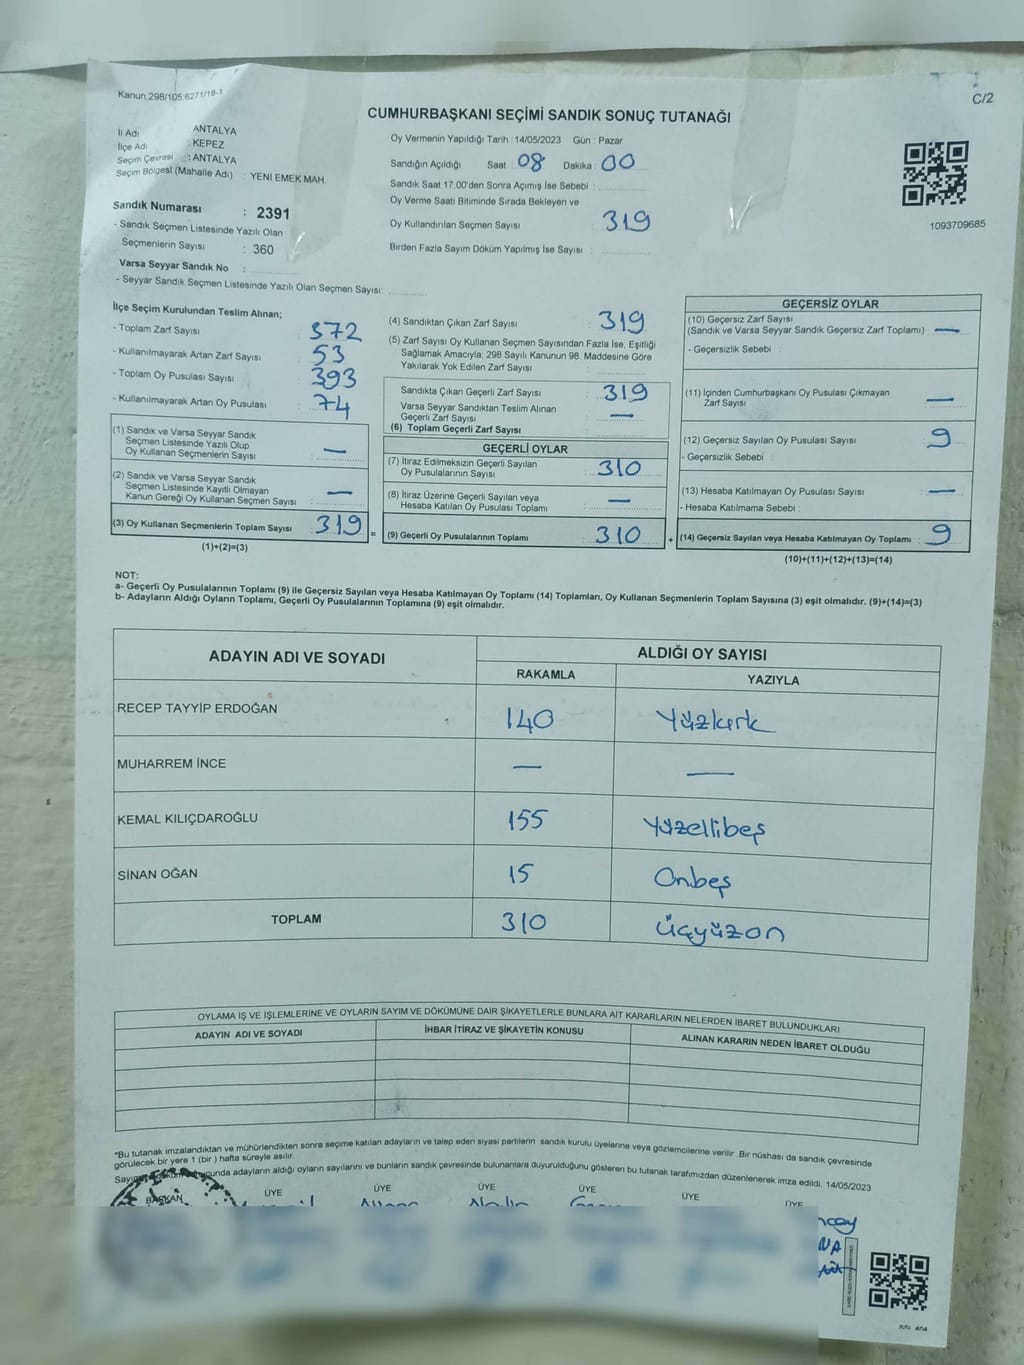 Kanun:298/105.6271/18-1
C/2
CUMHURBAŞKANI SEÇİMİ SANDIK SONUÇ TUTANAĞI
İl Adı : ANTALYA
İlçe Adı : KEPEZ
Seçim Çevresi : ANTALYA
Seçim Bölgesi (Mahalle Adı) : YENİ EMEK MAH.
Sandık Numarası : 2391
- Sandık Seçmen Listesinde Yazılı Olan
Seçmenlerin Sayısı : 360
Varsa Seyyar Sandık No :
- Seyyar Sandık Seçmen Listesinde Yazılı Olan Seçmen Sayısı:
Oy Vermenin Yapıldığı Tarih : 14/05/2023 Gün : Pazar
Sandığın Açıldığı Saat : 08 Dakika : 00
Sandık Saat 17.00'den Sonra Açımış İse Sebebi :
Oy Verme Saati Bitiminde Sırada Bekleyen ve
Oy Kullandırılan Seçmen Sayısı : 319
Birden Fazla Sayım Döküm Yapılmış İse Sayısı :
1093709685
İlçe Seçim Kurulundan Teslim Alınan;
- Toplam Zarf Sayısı : 372
- Kullanılmayarak Artan Zarf Sayısı : 53
- Toplam Oy Pusulası Sayısı : 393
- Kullanılmayarak Artan Oy Pusulası : 74
(1) Sandık ve Varsa Seyyar Sandık
Seçmen Listesinde Yazılı Olup
Oy Kullanan Seçmenlerin Sayısı : —
(2) Sandık ve Varsa Seyyar Sandık
Seçmen Listesinde Kayıtlı Olmayan
Kanun Gereği Oy Kullanan Seçmen Sayısı : —
(3) Oy Kullanan Seçmenlerin Toplam Sayısı : 319 =
(1)+(2)=(3)
(4) Sandıktan Çıkan Zarf Sayısı : 319
(5) Zarf Sayısı Oy Kullanan Seçmen Sayısından Fazla İse, Eşitliği
Sağlamak Amacıyla; 298 Sayılı Kanunun 98. Maddesine Göre
Yakılarak Yok Edilen Zarf Sayısı :
Sandıkta Çıkan Geçerli Zarf Sayısı : 319
Varsa Seyyar Sandıktan Teslim Alınan
Geçerli Zarf Sayısı : —
(6) Toplam Geçerli Zarf Sayısı :
GEÇERLİ OYLAR
(7) İtiraz Edilmeksizin Geçerli Sayılan
Oy Pusulalarının Sayısı : 310
(8) İtiraz Üzerine Geçerli Sayılan veya
Hesaba Katılan Oy Pusulası Toplamı : —
(9) Geçerli Oy Pusulalarının Toplamı : 310 +
GEÇERSİZ OYLAR
(10) Geçersiz Zarf Sayısı
(Sandık ve Varsa Seyyar Sandık Geçersiz Zarf Toplamı) : —
- Geçersizlik Sebebi :
(11) İçinden Cumhurbaşkanı Oy Pusulası Çıkmayan
Zarf Sayısı : —
(12) Geçersiz Sayılan Oy Pusulası Sayısı : 9
- Geçersizlik Sebebi :
(13) Hesaba Katılmayan Oy Pusulası Sayısı : —
- Hesaba Katılmama Sebebi :
(14) Geçersiz Sayılan veya Hesaba Katılmayan Oy Toplamı : 9
(10)+(11)+(12)+(13)=(14)
NOT:
a- Geçerli Oy Pusulalarının Toplamı (9) ile Geçersiz Sayılan veya Hesaba Katılmayan Oy Toplamı (14) Toplamları, Oy Kullanan Seçmenlerin Toplam Sayısına (3) eşit olmalıdır. (9)+(14)=(3)
b- Adayların Aldığı Oyların Toplamı, Geçerli Oy Pusulalarının Toplamına (9) eşit olmalıdır.
ADAYIN ADI VE SOYADI
ALDIĞI OY SAYISI
RAKAMLA YAZIYLA
RECEP TAYYİP ERDOĞAN 140 Yüzkırk
MUHARREM İNCE — —
KEMAL KILIÇDAROĞLU 155 Yüzellibeş
SİNAN OĞAN 15 Onbeş
TOPLAM 310 Üçyüzon
OYLAMA İŞ VE İŞLEMLERİNE VE OYLARIN SAYIM VE DÖKÜMÜNE DAİR ŞİKAYETLERLE BUNLARA AİT KARARLARIN NELERDEN İBARET BULUNDUKLARI
ADAYIN ADI VE SOYADI İHBAR İTİRAZ VE ŞİKAYETİN KONUSU ALINAN KARARIN NEDEN İBARET OLDUĞU
*Bu tutanak imzalandıktan ve mühürlendikten sonra seçime katılan adayların ve talep eden siyasi partilerin sandık kurulu üyelerine veya gözlemcilerine verilir. Bir nüshası da sandık çevresinde
görülecek bir yere 1 (bir ) hafta süreyle asılır.
adayların aldığı oyların sayılarını ve bunların sandık çevresinde bulunanlara duyurulduğunu gösteren bu tutanak tarafımızdan düzenlenerek imza edildi. 14/05/2023
BAŞKAN ÜYE ÜYE ÜYE ÜYE ÜYE ÜYE